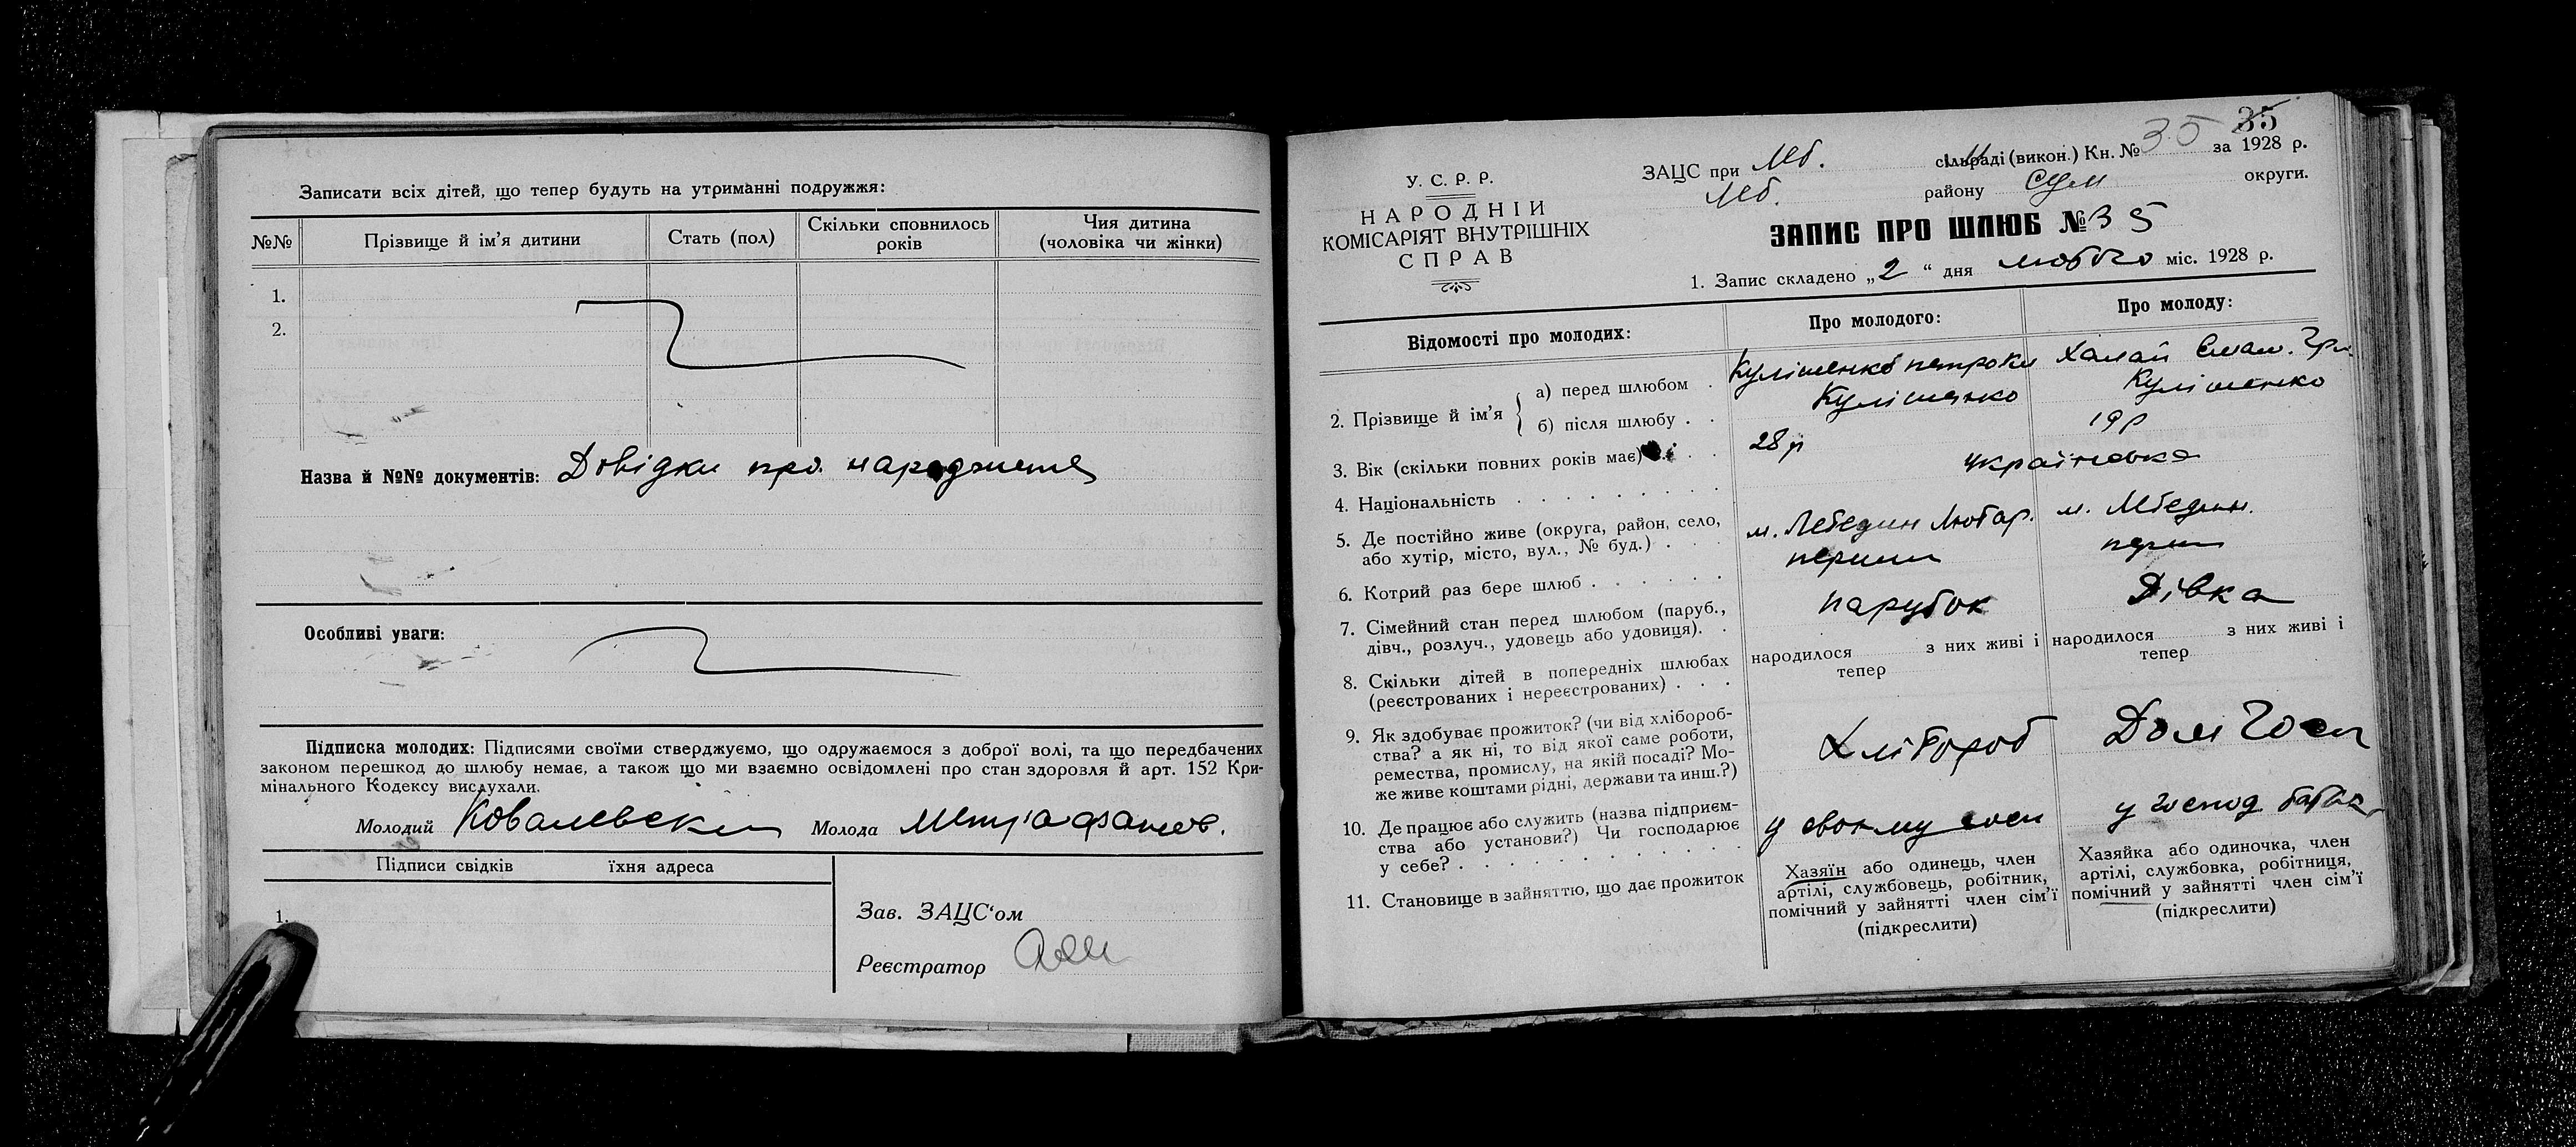 Записати всіх дітей, що тепер будуть на утриманні подружжя:
№№ Прізвище й ім'я дитини Стать (пол) Скільки сповнилось років Чия дитина (чоловіка чи жінки)
1.
2.
Назва й №№ документів: Довідки про народження
Особливі уваги:
Підписка молодих: Підписями своїми стверджуємо, що одружаємося з доброї волі, та що передбачених
законом перешкод до шлюбу немає, а також що ми взаємно освідомлені про стан здоровля й арт. 152 Кри-
мінального Кодексу вислухали.
Молодий Ковалевский Молода
Підписи свідків їхня адреса
1.
Зав. ЗАЦС'ом
Реєстратор
35
У. С. Р. Р.
НАРОДНІЙ
КОМІСАРІЯТ ВНУТРІШНІХ
СПРАВ
ЗАЦС при Леб. сільраді (викон.) Кн. № 35 за 1928 р.
Леб. району Сум округи.
ЗАПИС ПРО ШЛЮБ № 35
1. Запис складено „2“ дня лютого міс. 1928 р.
Відомості про молодих: Про молодого: Про молоду:
2. Прізвище й ім'я
а) перед шлюбом . Кулішенко Халай
б) після шлюбу . . Кулішенко Кулішенко
3. Вік (скільки повних років має) . . 28 р 19 р
4. Національність . . . . . . . . . українська
5. Де постійно живе (округа, район, село,
або хутір, місто, вул., № буд.) . . . м. Лебедин м. Лебедин.
6. Котрий раз бере шлюб . . . . . . перший перш
7. Сімейний стан перед шлюбом (паруб.,
дівч., розлуч., удовець або удовиця). . парубок Дівка
8. Скільки дітей в попередніх шлюбах
(реєстрованих і нереєстрованих) . . .
народилося з них живі і
тепер
народилося з них живі і
тепер
9. Як здобуває прожиток? (чи від хлібороб-
ства? а як ні, то від якої саме роботи,
ремества, промислу, на якій посаді? Мо-
же живе коштами рідні, держави та инш.?)
Хлібороб Дом Госп
10. Де працює або служить (назва підприєм-
ства або установи?) Чи господарює
у себе? . . . . . . . . . . . .
у своєму госп у господ батька
11. Становище в зайняттю, що дає прожиток
Хазяїн або одинець, член
артілі, службовець, робітник,
помічний у зайнятті член сім'ї
(підкреслити)
Хазяйка або одиночка, член
артілі, службовка, робітниця,
помічний у зайнятті член сім'ї
(підкреслити)